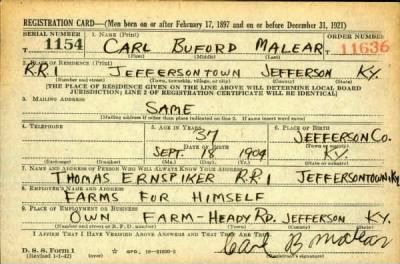 REGISTRATION CARD—(Men born on or after February 17, 1897 and on or before December 31, 1921)
SERIAL NUMBER 1. Name (Print) ORDER NUMBER
1154 CARL BUFORD MALEAR T 11636
(First) (Middle) (Last)
2. Place of Residence (Print)
R.R 1 JEFFERSONTOWN JEFFERSON KY.
(Number and street) (Town, township, village, or city) (County) (State)
[THE PLACE OF RESIDENCE GIVEN ON THE LINE ABOVE WILL DETERMINE LOCAL BOARD
JURISDICTION; LINE 2 OF REGISTRATION CERTIFICATE WILL BE IDENTICAL]
3. Mailing Address
SAME
[Mailing address if other than place indicated on line 2. If same insert word same]
4. Telephone 5. Age in Years 6. Place of Birth
37 JEFFERSON CO.
Date of Birth (Town or county)
SEPT. 18 1904 KY
(Exchange) (Number) (Mo.) (Day) (Yr.) (State or country)
7. Name and Address of Person Who Will Always Know Your Address
THOMAS ERNSPIKER R R 1 JEFFERSONTOWN KY
8. Employer's Name and Address
FARMS FOR HIMSELF
9. Place of Employment or Business
OWN FARM-HEADY RD. JEFFERSON KY.
(Number and street or R. F. D. number) (Town) (County) (State)
I Affirm That I Have Verified Above Answers and That They Are True.
D. S. S. Form 1
(Revised 1-1-42) GPO
Carl B Malear